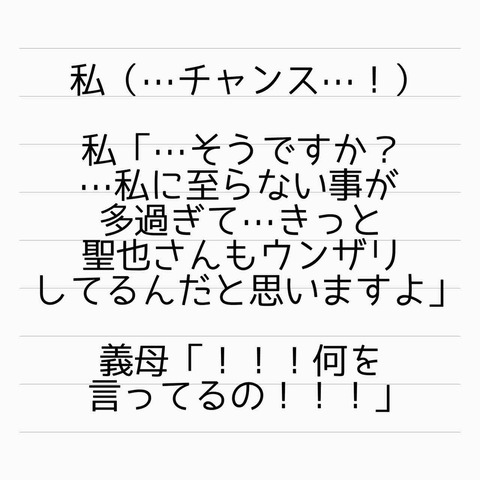 私（…チャンス…！）
私「…そうですか？
…私に至らない事が
多過ぎて…きっと
聖也さんもウンザリ
してるんだと思いますよ」
義母「！！！何を
言ってるの！！！」